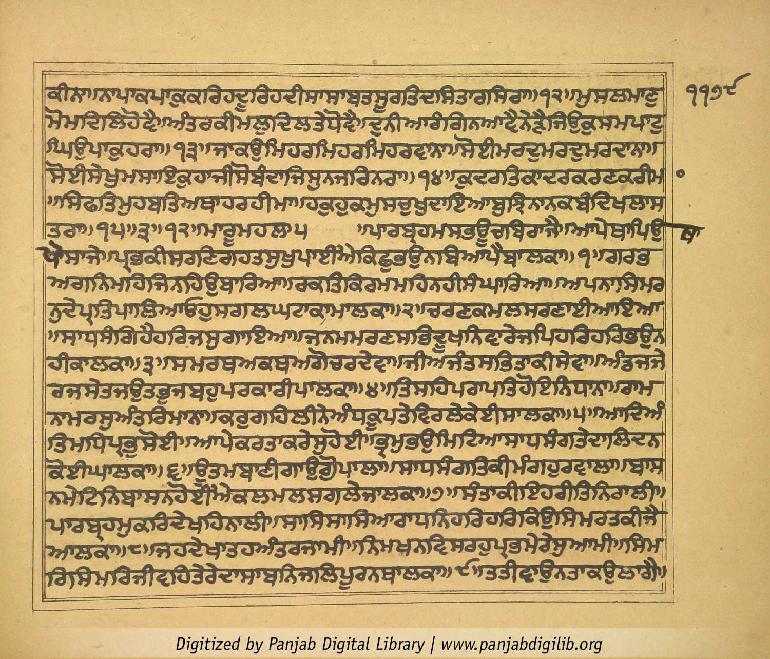 ੧੧੭੯
ਕੀਨਾ॥ਨਾਪਾਕਪਾਕੁਕਰਿਹਦੂਰਿਹਦੀਸਾਸਾਬਤਸੂਰਤਿਦਸਤਾਰਸਿਰਾ॥੧੨॥ਮੁਸਲਮਾਣੁ
ਸੋਮਦਿਲਿਹੋਵੈ॥ਅੰਤਰਕੀਮਲੁਦਿਲਤੇਧੋਵੈ॥ਦੁਨੀਆਰੰਗਿਨਆਵੈਨੇੜੈਜਿਉਕੁਸਮਪਾਟੁ
ਘਿਉਪਾਕੁਹਰਾ॥੧੩॥ਜਾਕਉਮਿਹਰਮਿਹਰਮਿਹਰਵਾਨਾ॥ਸੋਈਮਰਦੁਮਰਦੁਮਰਦਾਨਾ॥
ਸੋਈਸੇਖੁਮਸਾਇਕੁਹਾਜੀਸੋਬੰਦਾਜਿਸੁਨਜਰਿਨਰਾ॥੧੪॥ਕੁਦਰਤਿਕਾਦਰਕਰਣਕਰੀਮ
॥ਸਿਫਤਿਮੁਹਬਤਿਅਥਾਹਰਹੀਮਾ॥ਹਕੁਹੁਕਮੁਸਚੁਖੁਦਾਇਆਬੁਝਿਨਾਨਕਬੰਦਿਖਲਾਸ
ਤਰਾ॥੧੫॥੩॥੧੨॥ਮਾਰੂਮਹਲਾ੫ ॥ਪਾਰਬ੍ਰਹਮਸਭਊਚਬਿਰਾਜੈ॥ਆਪੇਥਾਪਿਉ
ਥਾਪੇਸਾਜੇ॥ਪ੍ਰਭਕੀਸਰਣਿਗਹਤਸੁਖੁਪਾਈਐਕਿਛੁਭਉਨਾਬਿਆਪੈਬਾਲਕਾ॥੧॥ਗਰਭ
ਅਗਨਿਮਾਹਿਜਿਨਹਿਉਬਾਰਿਆ॥ਰਕਤਕਿਰਮਮਹਿਨਹੀਸੰਘਾਰਿਆ॥ਅਪਨਾਸਿਮਰ
ਨੁਦੇਪ੍ਰਤਿਪਾਲਿਆਓਹੁਸਗਲਘਟਾਕਾਮਾਲਕਾ॥੨॥ਚਰਣਕਮਲਸਰਣਾਈਆਇਆ
॥ਸਾਧਸੰਗਿਹੈਹਰਿਜਸੁਗਾਇਆ॥ਜਨਮਮਰਣਸਭਿਦੂਖਨਿਵਾਰੇਜਪਿਹਰਿਹਰਿਭਉਨ
ਹੀਕਾਲਕਾ॥੩॥ਸਮਰਥਅਕਥਅਗੋਚਰਦੇਵਾ॥ਜੀਅਜੰਤਸਭਿਤਾਕੀਸੇਵਾ॥ਅੰਡਜਜੇ
ਰਜਸੇਤਜਉਤਭੁਜਬਹੁਪਰਕਾਰੀਪਾਲਕਾ॥੪॥ਤਿਸਹਿਪਰਾਪਤਿਹੋਇਨਿਧਾਨਾ॥ਰਾਮ
ਨਾਮਰਸੁਅੰਤਰਿਮਾਨਾ॥ਕਰੁਗਹਿਲੀਨੇਅੰਧਕੂਪਤੇਵਿਰਲੇਕੇਈਸਾਲਕਾ॥੫॥ਆਦਿਅੰ
ਤਿਮਧਿਪ੍ਰਭੁਸੋਈ॥ਆਪੇਕਰਤਾਕਰੇਸੁਹੋਈ॥ਭ੍ਰਮੁਭਉਮਿਟਿਆਸਾਧਸੰਗਤੇਦਾਲਿਦਨ
ਕੋਈਘਾਲਕਾ॥੬॥ਊਤਮਬਾਣੀਗਾਉਗੋੁਪਾਲਾ॥ਸਾਧਸੰਗਤਿਕੀਮੰਗਹੁਰਵਾਲਾ॥ਬਾਸ
ਨਮੇਟਿਨਿਬਾਸਨਹੋਈਐਕਲਮਲਸਗਲੇਜਾਲਕਾ॥੭॥ਸੰਤਾਕੀਇਹਰੀਤਿਨਿਰਾਲੀ॥
ਪਾਰਬ੍ਰਹਮੁਕਰਿਦੇਖਹਿਨਾਲੀ॥ਸਾਸਿਸਾਸਿਆਰਾਧਨਿਹਰਿਹਰਿਕਿਉਸਿਮਰਤਕੀਜੈ
ਆਲਕਾ॥੮॥ਜਹਦੇਖਾਤਹਅੰਤਰਜਾਮੀ॥ਨਿਮਖਨਵਿਸਰਹੁਪ੍ਰਭਮੇਰੇਸੁਆਮੀ॥ਸਿਮ
ਰਿਸਿਮਰਿਜੀਵਹਿਤੇਰੇਦਾਸਾਬਨਿਜਲਿਪੂਰਨਥਾਲਕਾ॥੯॥ਤਤੀਵਾਉਨਤਾਕਉਲਾਗੈ॥
Digitized by Panjab Digital Library | www.panjabdigilib.org